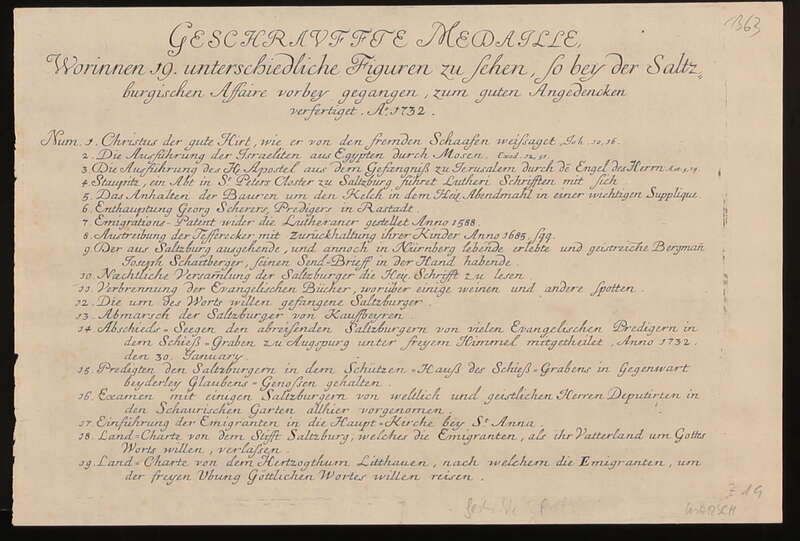 1363
GESCHRAVFFTE MEDAILLE,
Worinnen 19. unterschiedliche Figuren zu sehen, so bey der Saltz-
burgischen Affaire vorbey gegangen, zum guten Angedencken
verfertiget. Aº. 1732.
Num. 1. Christus der gute Hirt, wie er von den fremden Schaafen weissaget, Joh. 10, 16.
2. Die Ausführung der Israeliten aus Egypten durch Mosen. Exod. 12, 51.
3. Die Ausführung des H. Apostel aus dem Gefängniß zu Jerusalem durch dē Engel des Herrn Act. 5, 19.
4. Staupitz, ein Abt in St. Peters Closter zu Saltzburg führet Lutheri Schrifften mit sich
5. Das Anhalten der Bauren um den Kelch in dem Heil. Abendmahl in einer wichtigen Supplique.
6. Enthauptung Georg Scherers, Predigers in Rastadt.
7. Emigrations-Patent wider die Lutheraner gestellet Anno 1588.
8. Austreibung der Tefferecker mit zurückhaltung ihrer Kinder Anno 1685. sqq.
9. Der aus Saltzburg ausgehende, und annoch in Nürnberg lebende erlebte und geistreiche Bergmañ
Joseph Schaitberger, seinen Send-Brieff in der Hand habende.
10. Nächtliche Versamlung der Saltzburger die Heil. Schrifft zu lesen.
11. Verbrennung der Evangelischen Bücher, worüber einige weinen und andere spotten.
12. Die um des Worts willen gefangene Saltzburger.
13. Abmarsch der Saltzburger von Kauffbeyren.
14. Abschieds-Seegen den abreisenden Saltzburgern von vielen Evangelischen Predigern in
dem Schieß-Graben zu Augspurg unter freyem Himmel mitgetheilet, Anno 1732.
den 30. January.
15. Predigten den Saltzburgern in dem Schützen-Hauß des Schieß-Grabens in Gegenwart
beyderley Glaubens-Genossen gehalten.
16. Examen mit einigen Saltzburgern von weltlich und geistlichen Herren Deputirten in
den Schaurischen Garten allhier vorgenomen.
17. Einführung der Emigranten in die Haupt-Kirche bey St. Anna.
18. Land-Charte von dem Stifft Saltzburg, welches die Emigranten, als ihr Vatterland um Gottes
Worts willen, verlassen.
19. Land-Charte von dem Hertzogthum Litthauen, nach welchem die Emigranten, um
der freyen Ubung Göttlichen Wortes willen reisen.